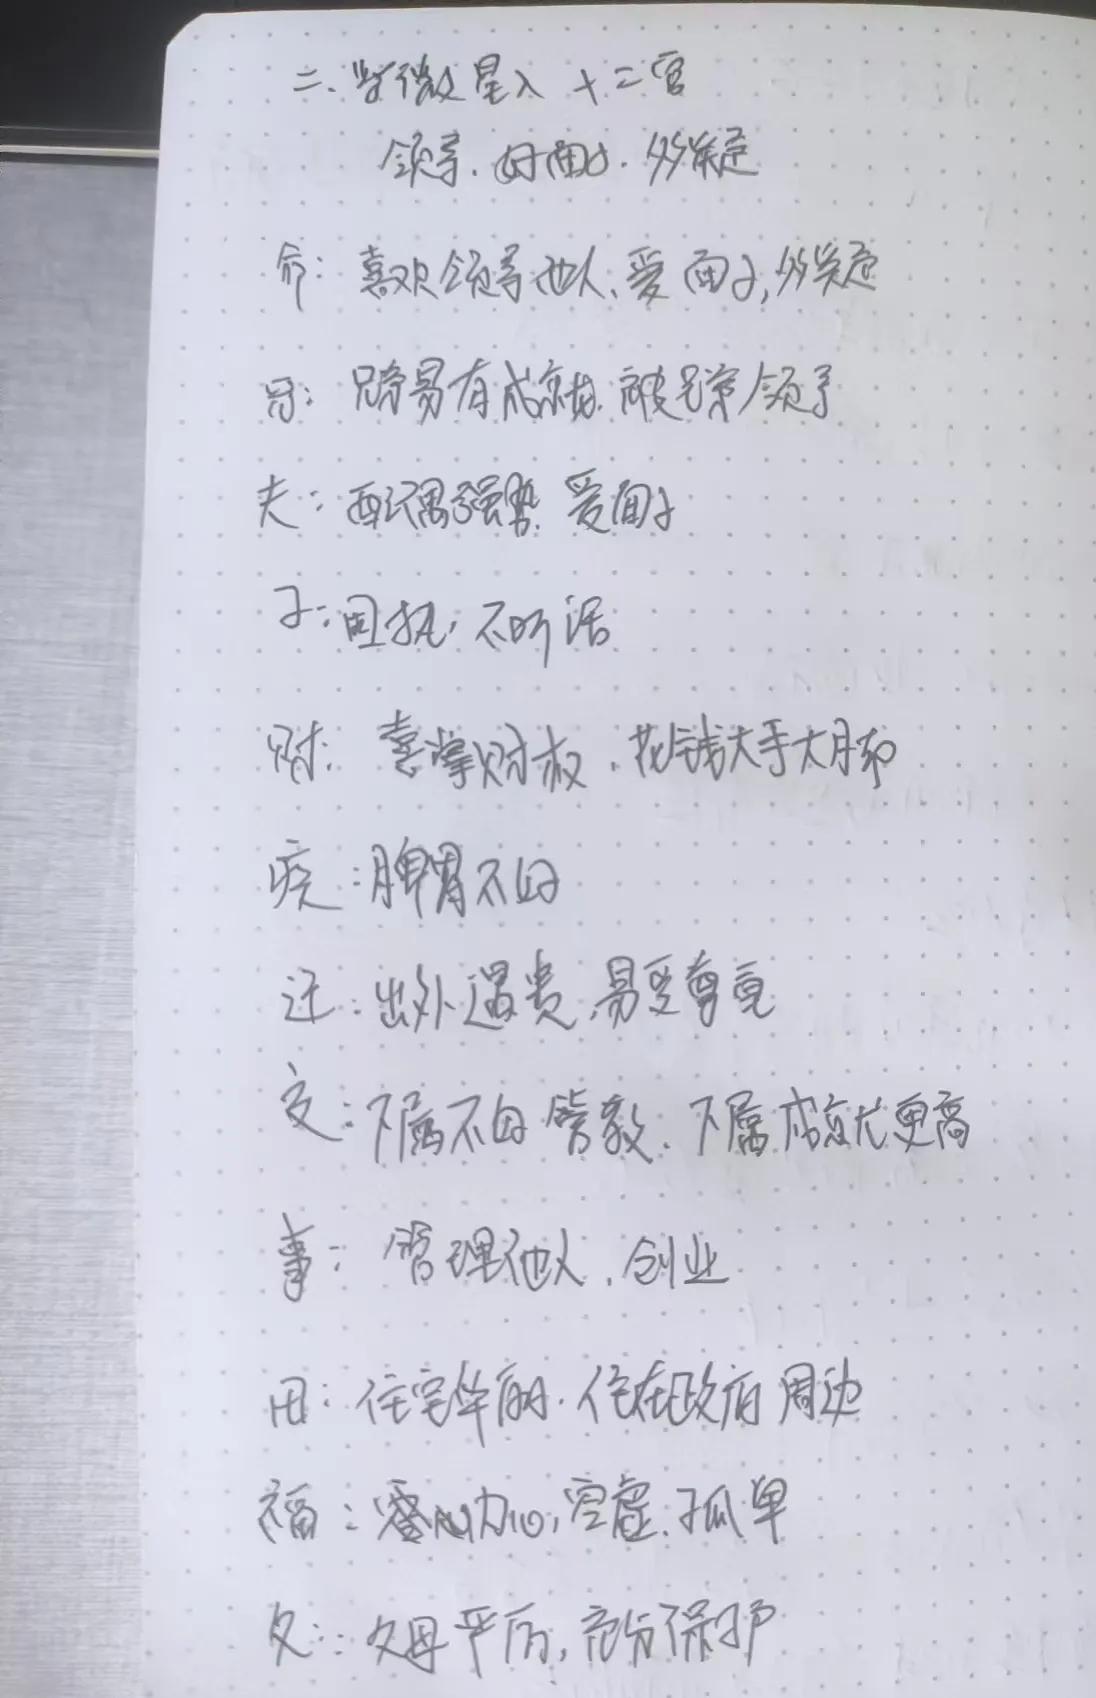 二、紫微星入十二宫
领导.好面子.多疑
命：喜欢领导他人、爱面子,多疑
兄：兄弟易有成就.被兄弟领导
夫：配偶强势 爱面子
子：固执，不听话
财：喜掌财权、花钱大手大脚
疾：脾胃不好
迁：出外遇贵,易受尊重
交：下属不好管教、下属成就更高
事：管理他人、创业
田：住宅华丽.住在政府周边
福：劳心力,空虚.孤单
父：父母严厉,充分保护